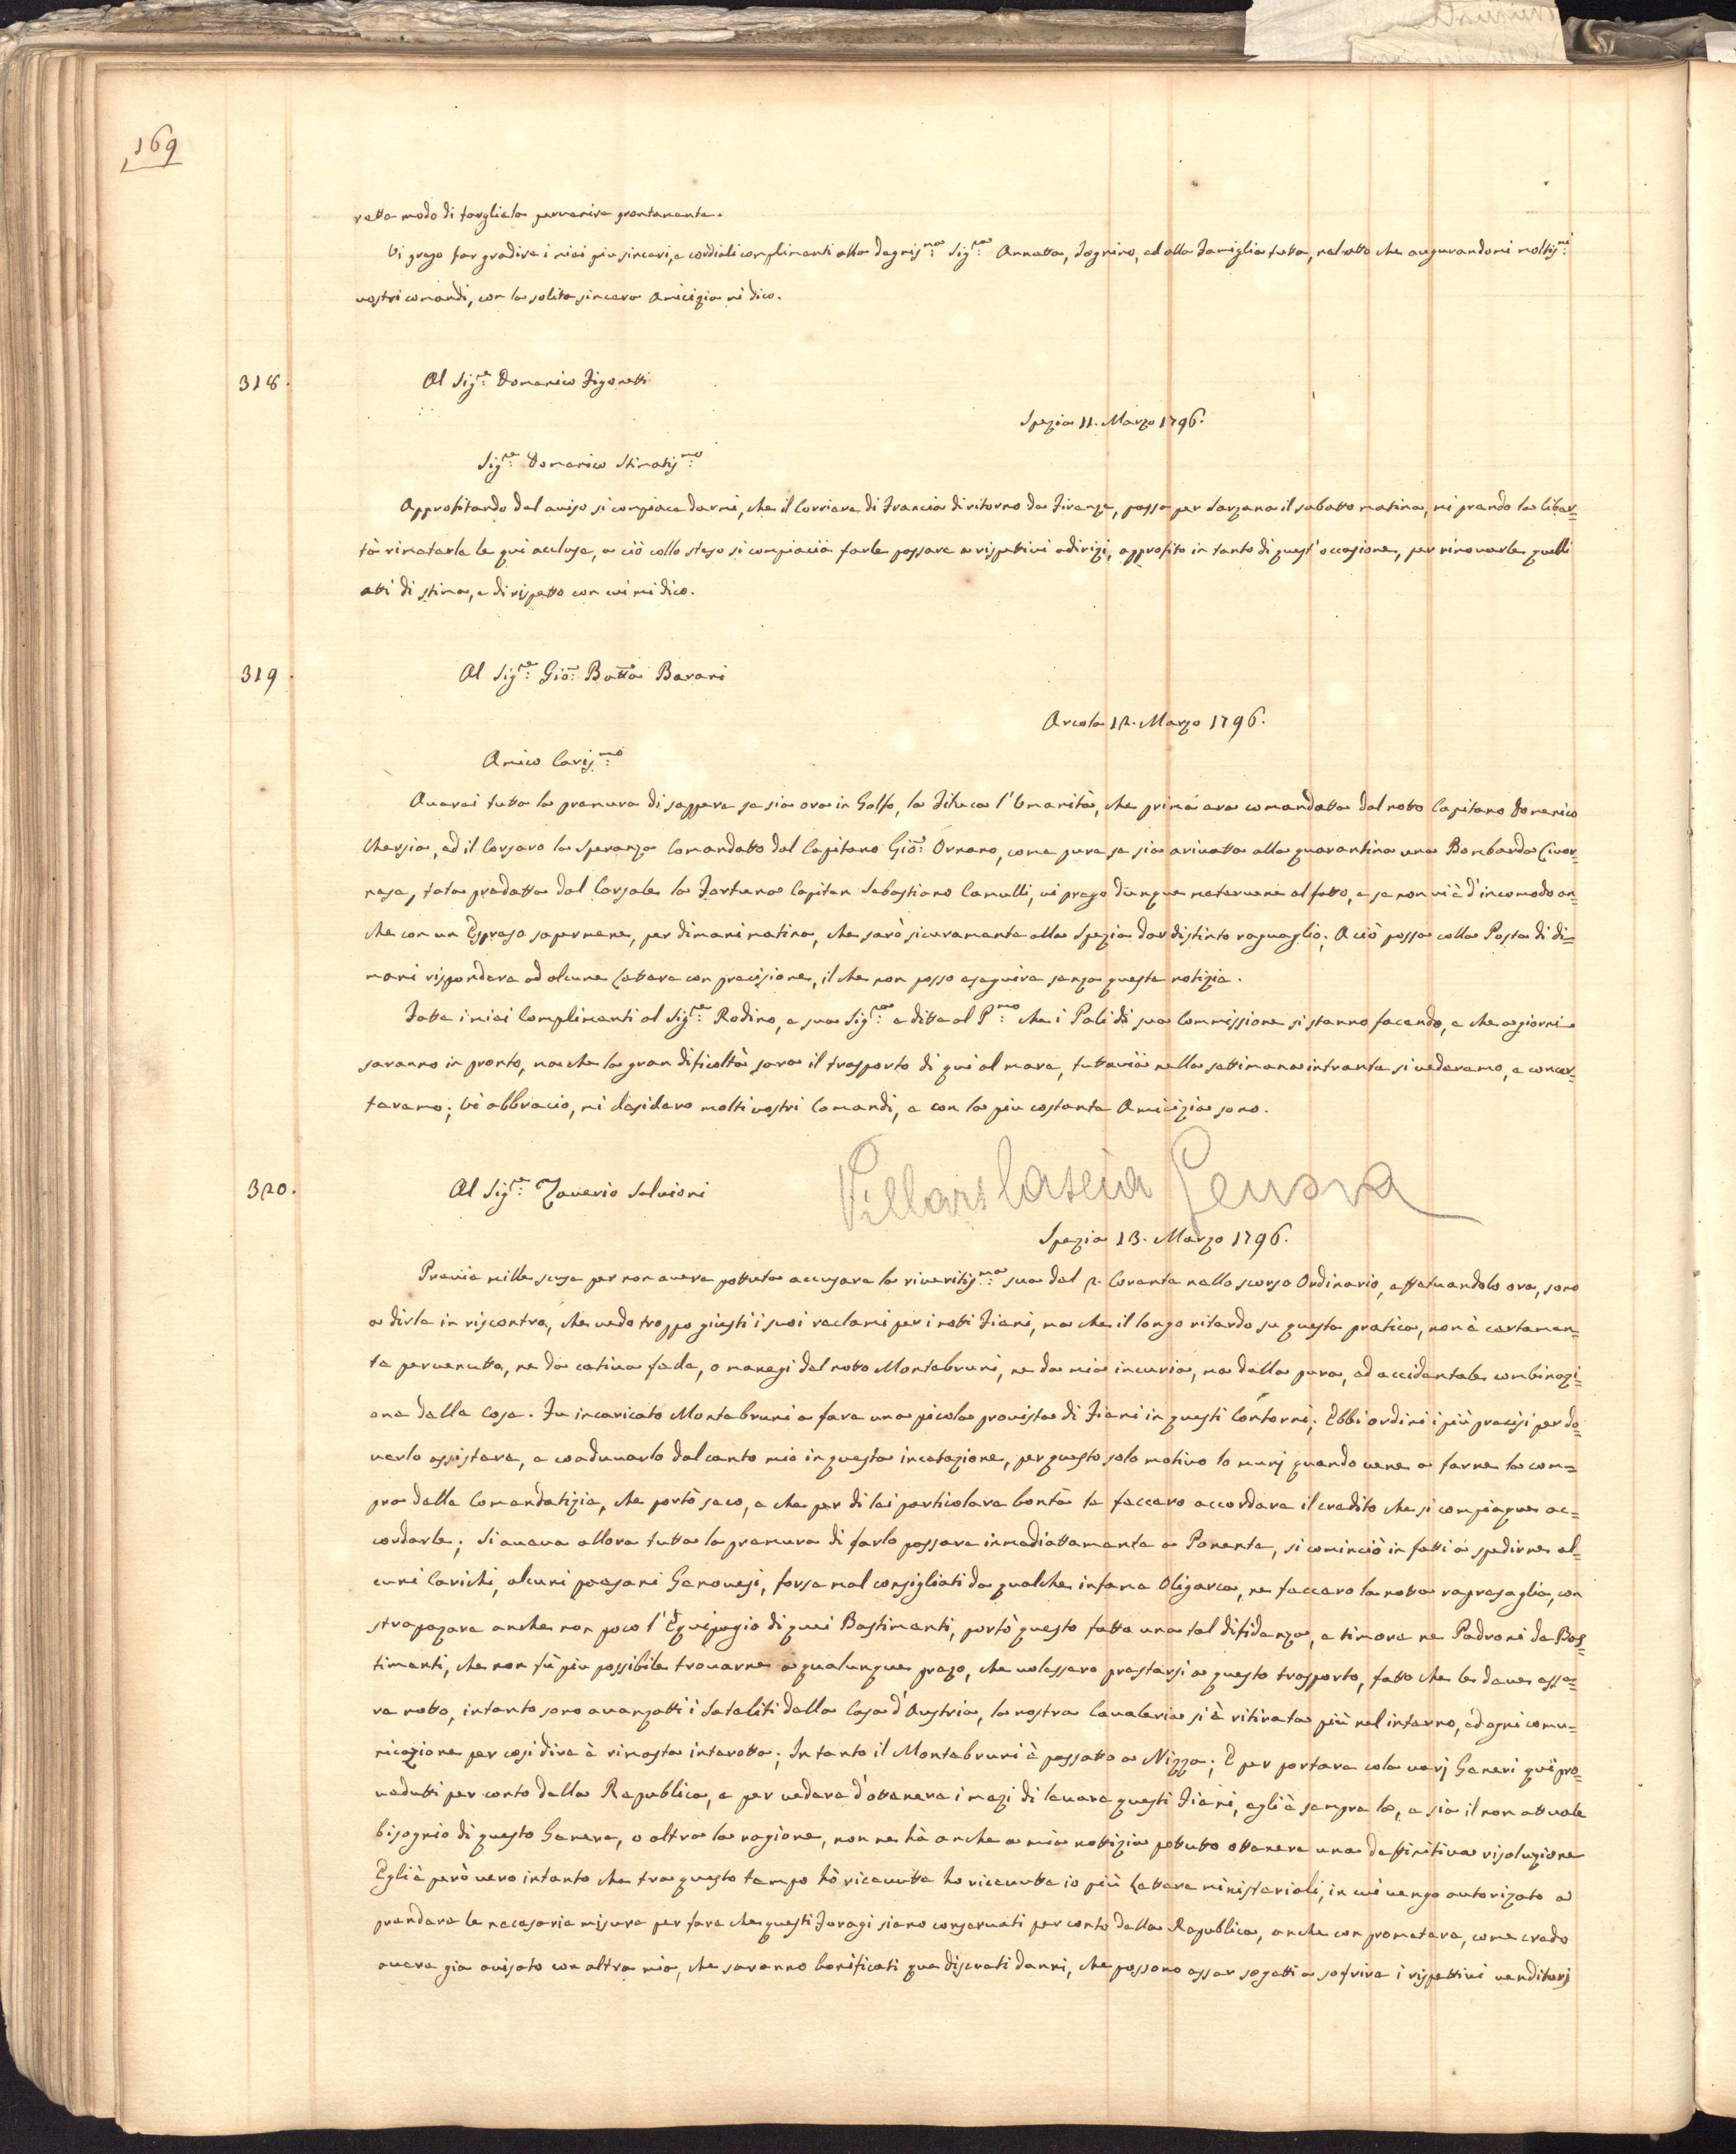 169
rette modo di fargliela pervenire prontamente.
Vi prego far gradire i miei piu sinceri, e cordiali complimenti alla degnis:ma Sig:ra Annetta, Tognino, ed alla Famiglia tutta, nel atto che augurandomi moltis:mi
vostri comandi, con la solita sincera Amicizia mi dico.
318.
Al Sig:re Domenico Figoretti
Spezia 11. Marzo 1796.
Sig:re Domenico Stimatis:mo
Approfitando del aviso si compiace darmi, che il Corriere di Francia di ritorno da Firenze, passa per Sarzana il sabatto matina, mi prendo la liber=
tà rimeterle le qui accluse, a ciò collo steso si compiacia farle passare a rispetivi adirizi, approfito in tanto di quest'occasione, per rinovarle quelli
atti di stima, e di rispetto con cui mi dico.
319.
Al Sig:re Gio: Batta Bavari
Arcola 12. Marzo 1796.
Amico Caris:mo
Auerei tutta la premura di sappere se sia ora in Golfo, la Filuca l'Umanità, che prima era comandatta dal notto Capitano Domenico
Chersia, ed il Corsaro la Speranza Comandatto dal Capitano Gio: Ornano, come pure se sia arivatta alla quarantina una Bombarda Livor=
nese, stata predatta dal Corsale la Fortuna Capitan Sebastiano Camulli, vi prego dunque metervene al fatto, e se non vi è d'incomodo an=
che con un Espreso sapermene, per dimani matina, che sarò sicuramente alla Spezia dar distinto raguaglio; A ciò possa colla Posta di di=
mani rispondere ad alcune Lettere con precisione, il che non posso eseguire senza queste notizie.
Fatte i miei Complimenti al Sig:re Rodino, e sua Sig:ra e ditte al P:mo che i Pali di sua Commissione si stanno facendo, e che a giorni
saranno in pronto, ma che la gran dificoltà sara il trasporto di qui al mare, tuttavia nella settimana intrante si vederemo, e concer=
teremo; Vi abbracio, mi desidero molti vostri Comandi, e con la piu costante Amicizia sono.
Villars lascia Genova
320.
Al Sig:re Zaverio Salvioni
Spezia 13. Marzo 1796.
Previe mille scuse per non avere pottuto accusare la riveritis:ma sua del 2. Corrente nello scorso Ordinario, effetuandolo ora, sono
a dirle in riscontro, che vedo troppo giusti i suoi reclami per i notti Fieni, ma che il longo ritardo su questa pratica, non è certamen=
te pervenutta, ne da cativa fede, o manegi del notto Montebruni, ne da mia incuria, ma dalla pura, ed accidentale combinazi=
one delle Cose. Fu incaricato Montebruni a fare una picola provista di Fieni in questi Contorni; Ebbi ordini i più precisi per do=
verlo assistere, e coaduvarlo dal canto mio in questa incetazione, per questo solo motivo lo munj quando vene a farne la com=
pra delle Comandatizie, che portò seco, e che per di lei particolare bontà le feccero accordare il credito che si compiaque ac=
cordarle; Si aueva allora tutta la premura di farlo passare immediattamente a Ponente, si cominciò in fatti a spedirne al=
cuni Carichi, alcuni paesani Genovesi, forse mal consigliati da qualche infame Oligarca, ne feccero la notta rapresaglia, con
strapazare anche non poco l'Equipagio di quei Bastimenti, portò questo fatto una tal difidanza, e timore ne Padroni de Bas=
timenti, che non fù piu possibile trovarne a qualunque prezo, che volessero prestarsi a questo trasporto, fatto che le deve esse=
re notto, intanto sono avanzatti i Sateliti della Casa d'Austria, la nostra Cavaleria si è ritirata più nel interno, ed ogni comu=
nicazione per cosi dire è rimasta interotta; In tanto il Montebruni è passatto a Nizza; E per portare cola varj Generi qui pro=
vedutti per conto della Republica, e per vedere d'ottenere i mezi di levare questi Fieni, egli è sempre la, e sia il non attuale
bisognio di questo Genere, o altra la ragione, non ne hà anche a mia nottizia pottutto ottenere una deffinitiva risoluzione
Egli è però vero intanto che tra questo tempo hò ricevutte ho ricevutte io più Lettere ministeriali, in cui vengo autorizato a
prendere le necesarie misure per fare che questi Foragi siano conservati per conto della Republica, anche con prometere, come credo
avere gia avisato con altra mia, che saranno bonificati que discreti danni, che possono esser sogetti a sofrire i rispettivi venditorj